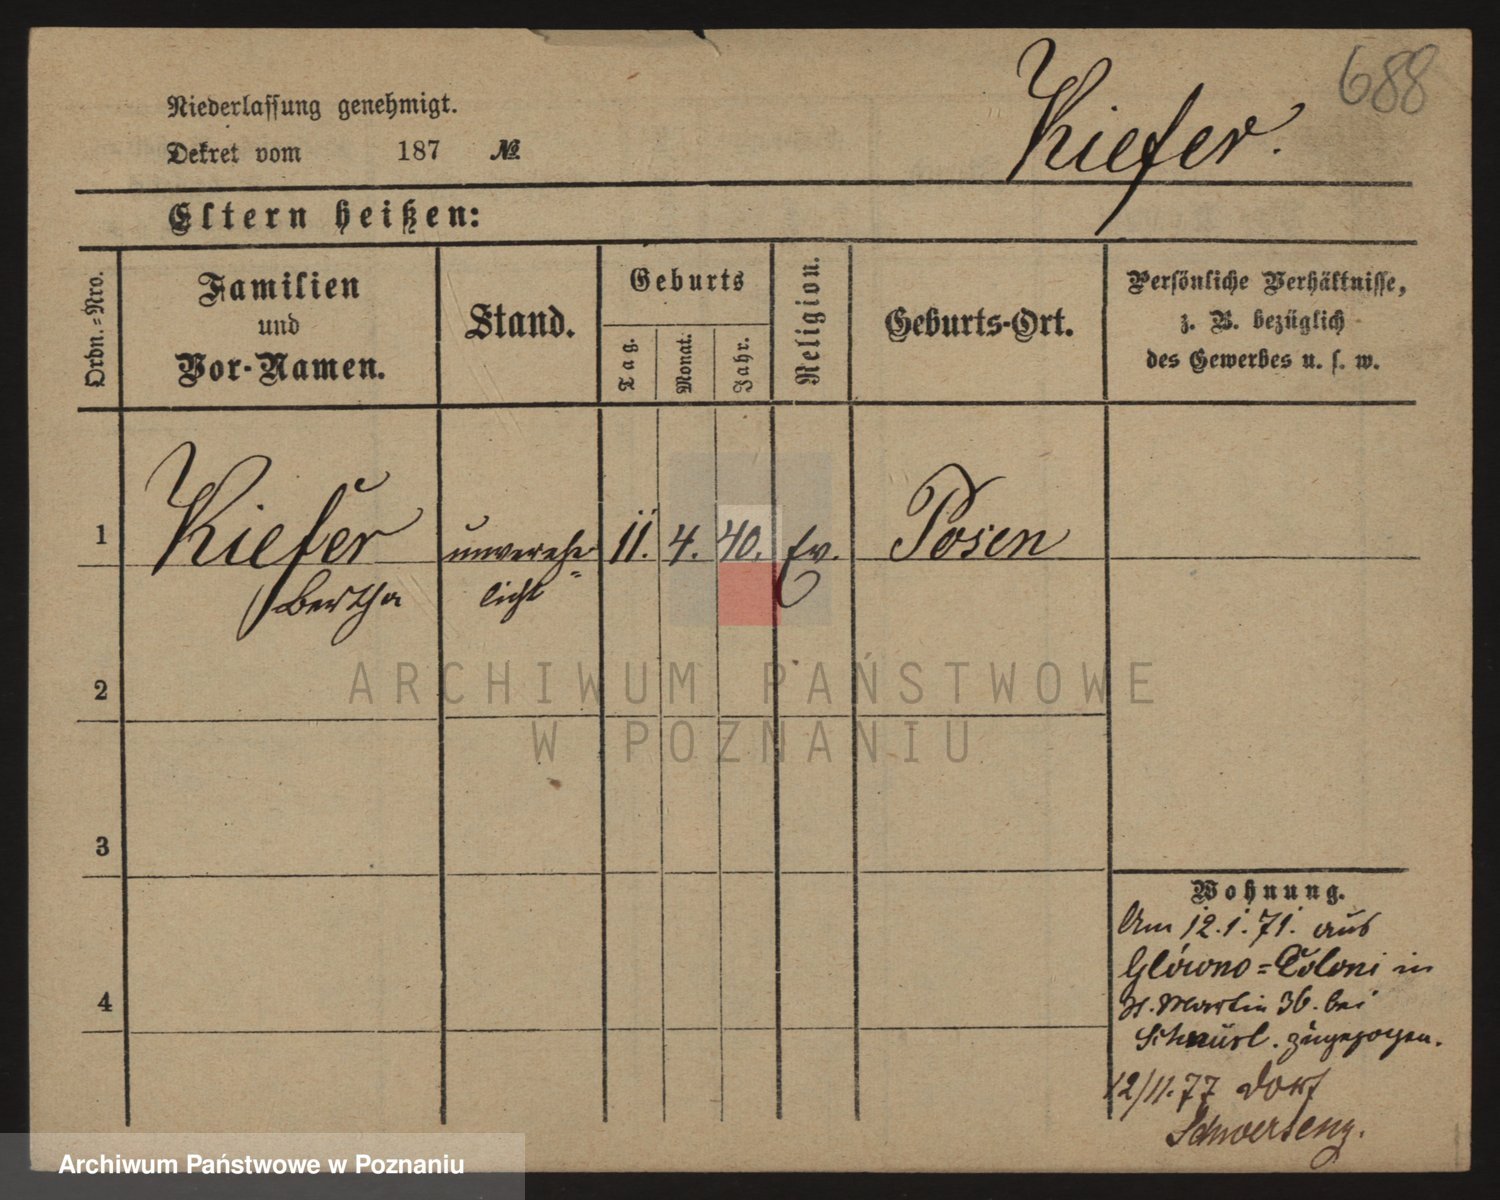 688
Kiefer.
Niederlassung genehmigt.
Dekret vom 187 №
Eltern heißen:
Ordn.=Nro.
Familien
und
Vor-Namen.
Stand.
Geburts
Tag.
Monat.
Jahr.
Religion.
Geburts-Ort.
Persönliche Verhältnisse,
z. B. bezüglich
des Gewerbes u. s. w.
1 Kiefer unverehe= 11. 4. 40. Ev. Posen
Bertha licht
2
3
4
Wohnung.
Am 12.1.71. aus
Glówno=Coloni in
St. Martin 36. bei
zugezogen.
12/11.77 Dorf
Schwersenz.
ARCHIWUM PAŃSTWOWE
W POZNANIU
Archiwum Państwowe w Poznaniu